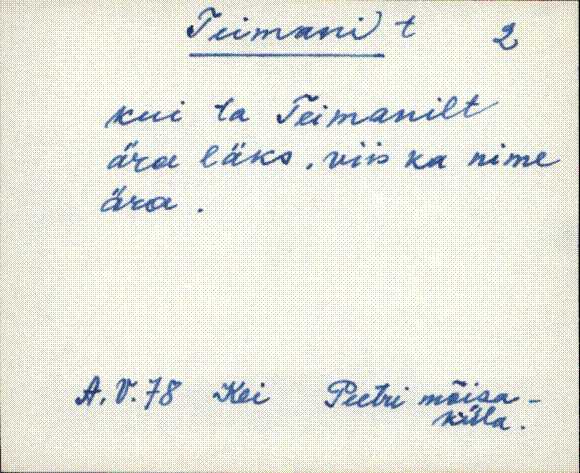 Teimani) t 2
kui ta Teimanilt
ära läks, viis ka nime
ära.
A.V.78 Kei Peetri mõisa-
küla.